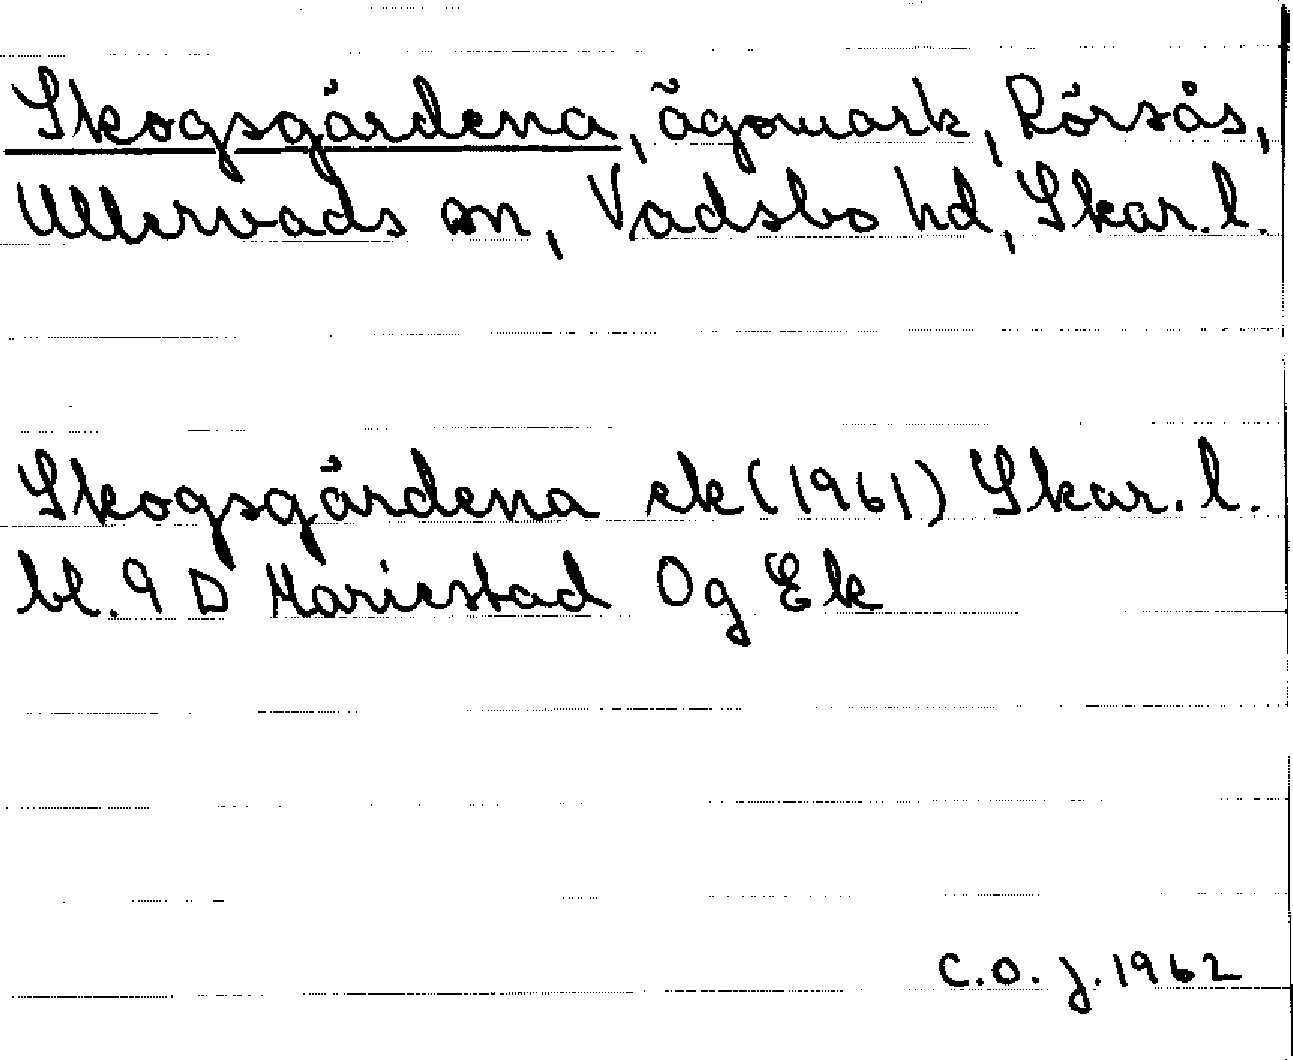 Skogsgårdena, ägomark, Rörsås,
Ullervads sn, Vadsbo hd, Skar. l.
Skogsgårdena ek (1961) Skar. l.
bl. 9 D Mariestad Og Ek
C.O. J. 1962